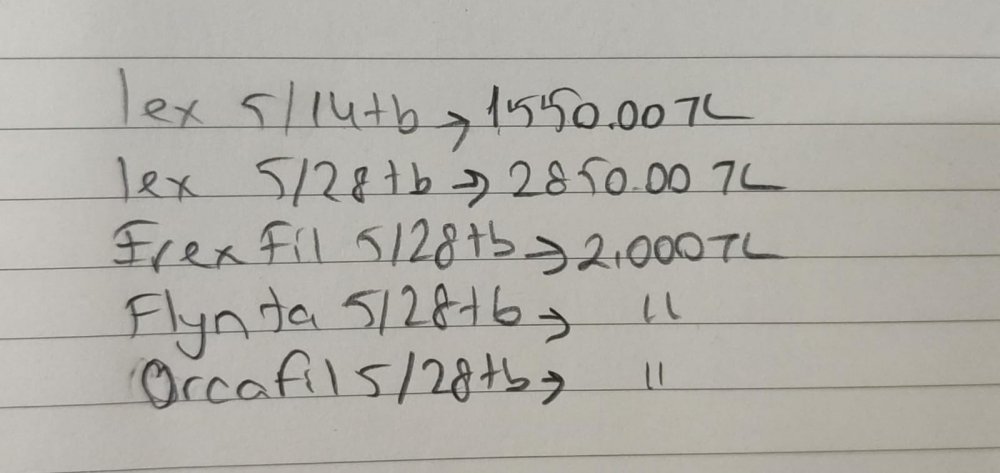 lex 5/14+b → 1550.00 TL
lex 5/28+b → 2850.00 TL
Frex Fil 5/28+b → 2.000 TL
Flynta 5/28+b → "
Orcafil 5/28+b → "